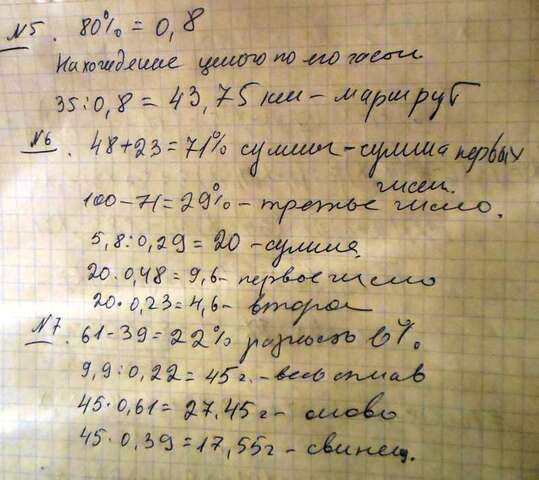 №5. 80% = 0,8
Нахождение целого по его части
35:0,8 = 43,75 км – маршрут
№6. 48+23=71% суммы – сумма первых
чисел.
100–71=29% – третье число.
5,8:0,29=20 – сумма
20·0,48=9,6 – первое число
20·0,23=4,6 – второе
№7. 61–39=22% разность в %.
9,9:0,22=45г. – весь сплав
45·0,61=27,45г – олово
45·0,39=17,55г – свинец.